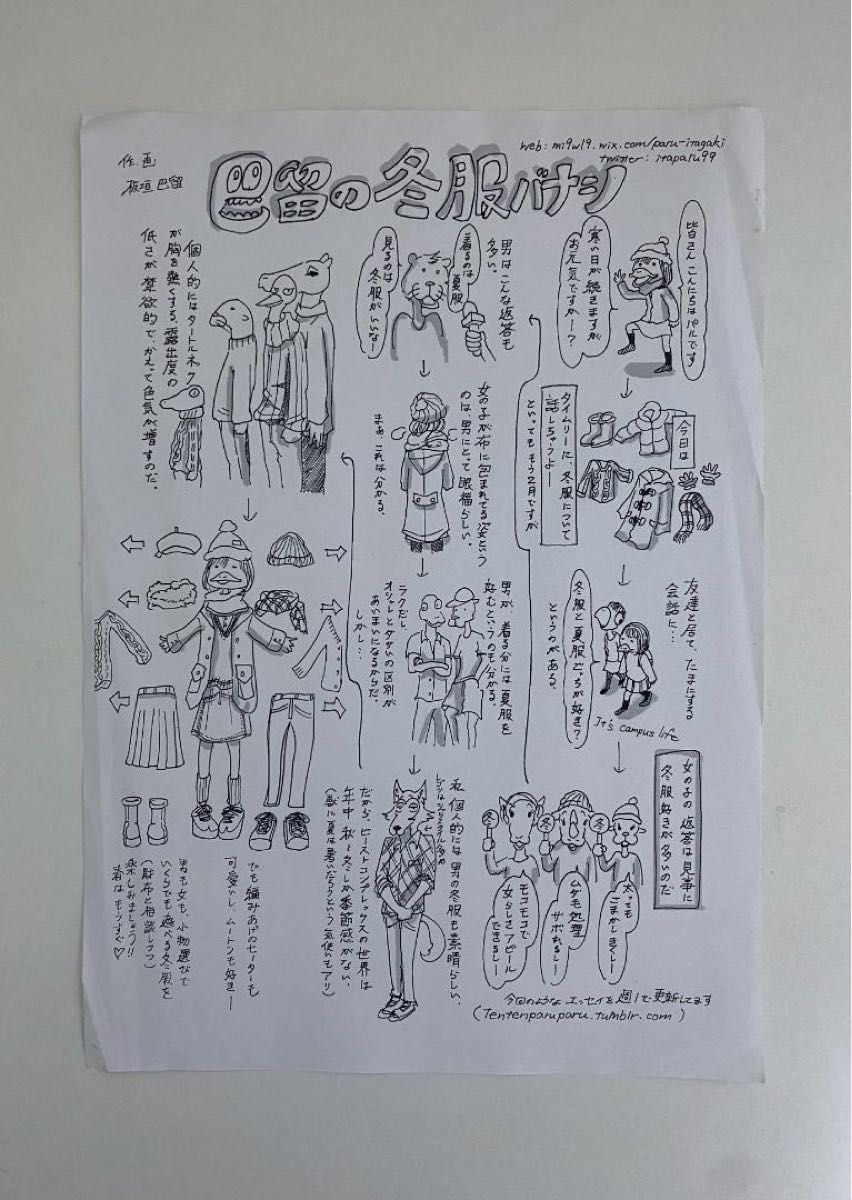 web: mi9wl9.wix.com/paru-itagaki
twitter: itaparu99
巴留の冬服バナシ
作・画
板垣巴留
皆さんこんにちはパルです
寒い日が続きますが
お元気ですかー?
今日は
タイムリーに、冬服について
話しちゃうよー
といってももう2月ですが
友達と居て、たまにする
会話に…
冬服と夏服どっちが好き?
というのがある。
It's campus life
女の子の返答は見事に
冬服好きが多いのだ
冬
冬
冬
太っても
ごまかしきくしー
ムダ毛処理
サボれるしー
モコモコで
女らしさアピール
できるしー
今回のような エッセイを週1で更新してます
(Tentenparuparu.tumblr.com)
男はこんな返答も
多い。
着るのは
夏服
見るのは
冬服がいいなー
女の子が布に包まれてる姿という
のは、男にとって眼福らしい。
まぁ、これは分かる。
男が、着る分には夏服を
好むというのも分かる。
ラクだし
オシャレとダサいの区別が
あいまいになるからだ。
しかし…
私、個人的には男の冬服も素晴らしい、
だから、ビーストコンプレックスの世界は
年中 秋〜冬しか季節感がない。
(獣に夏は暑いだろうという気使いもアリ)
個人的にはタートルネック
が胸を熱くする。露出度の
低さが禁欲的で、かえって色気が増すのだ。
でも編みあげのセーターも
可愛いし、ムートンも好きー
男も女も、小物選びで
いくらでも遊べる冬服を
(財布と相談しつつ)
楽しみましょう!!
春はもうすぐ♡